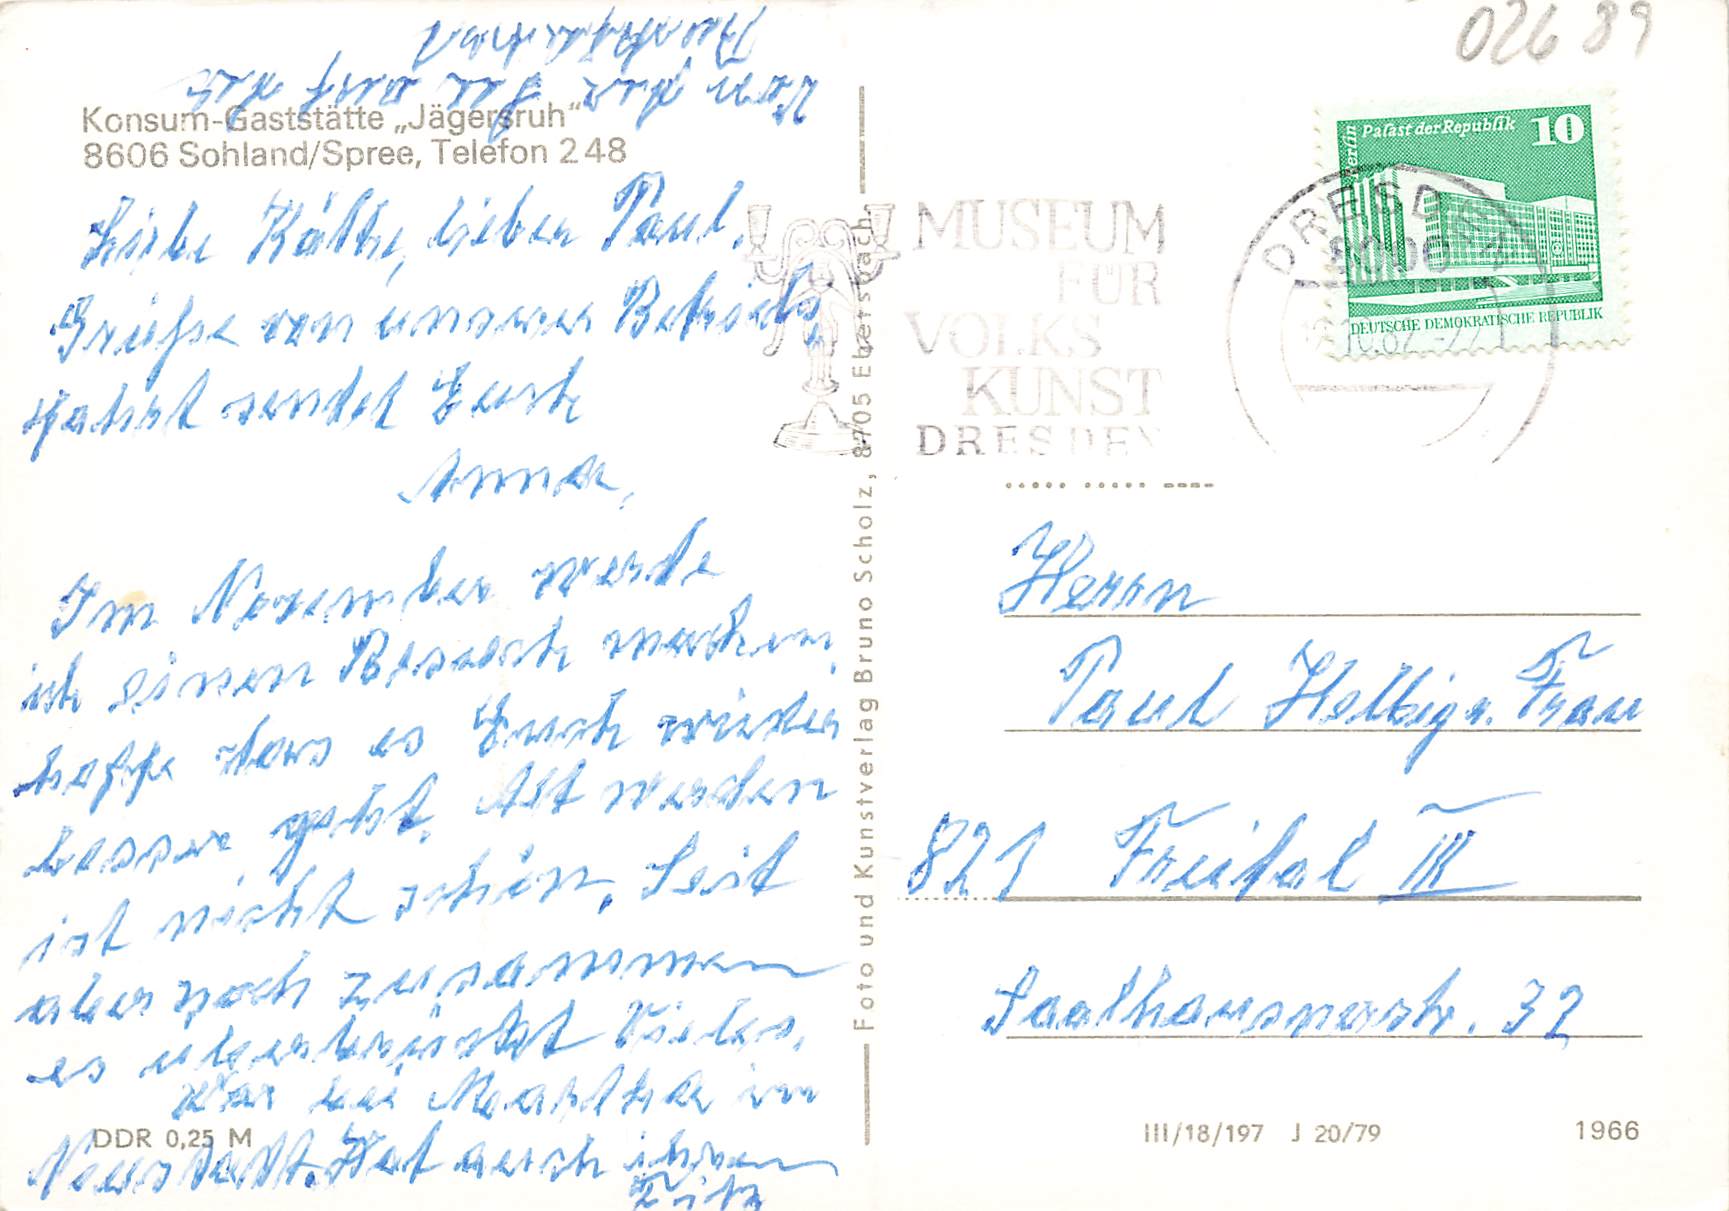 Konsum-Gaststätte „Jägersruh“
8606 Sohland/Spree, Telefon 248
Liebe Käthe, lieber Paul,
Grüße von unserer Betriebs
fahrt sendet Euch
Anna,
Im November werde
ich einen Besuch machen,
hoffe dass es Euch wieder
besser geht. Alt werden
ist nicht schön. Seit
aber noch zusammen
es überbrückt Vieles.
War bei Martha in
Neustadt. Hat auch ihren
von der auf
Foto und Kunstverlag Bruno Scholz, 8705 Ebersbach
DDR 0,25 M
02689
Berlin Palast der Republik 10
DEUTSCHE DEMOKRATISCHE REPUBLIK
MUSEUM
FÜR
VOLKS
KUNST
DRESDEN
DRESDEN
Herrn
Paul Helbig u. Frau
821 Freital III
Saalhausnerstr. 32
III/18/197 J 20/79 1966